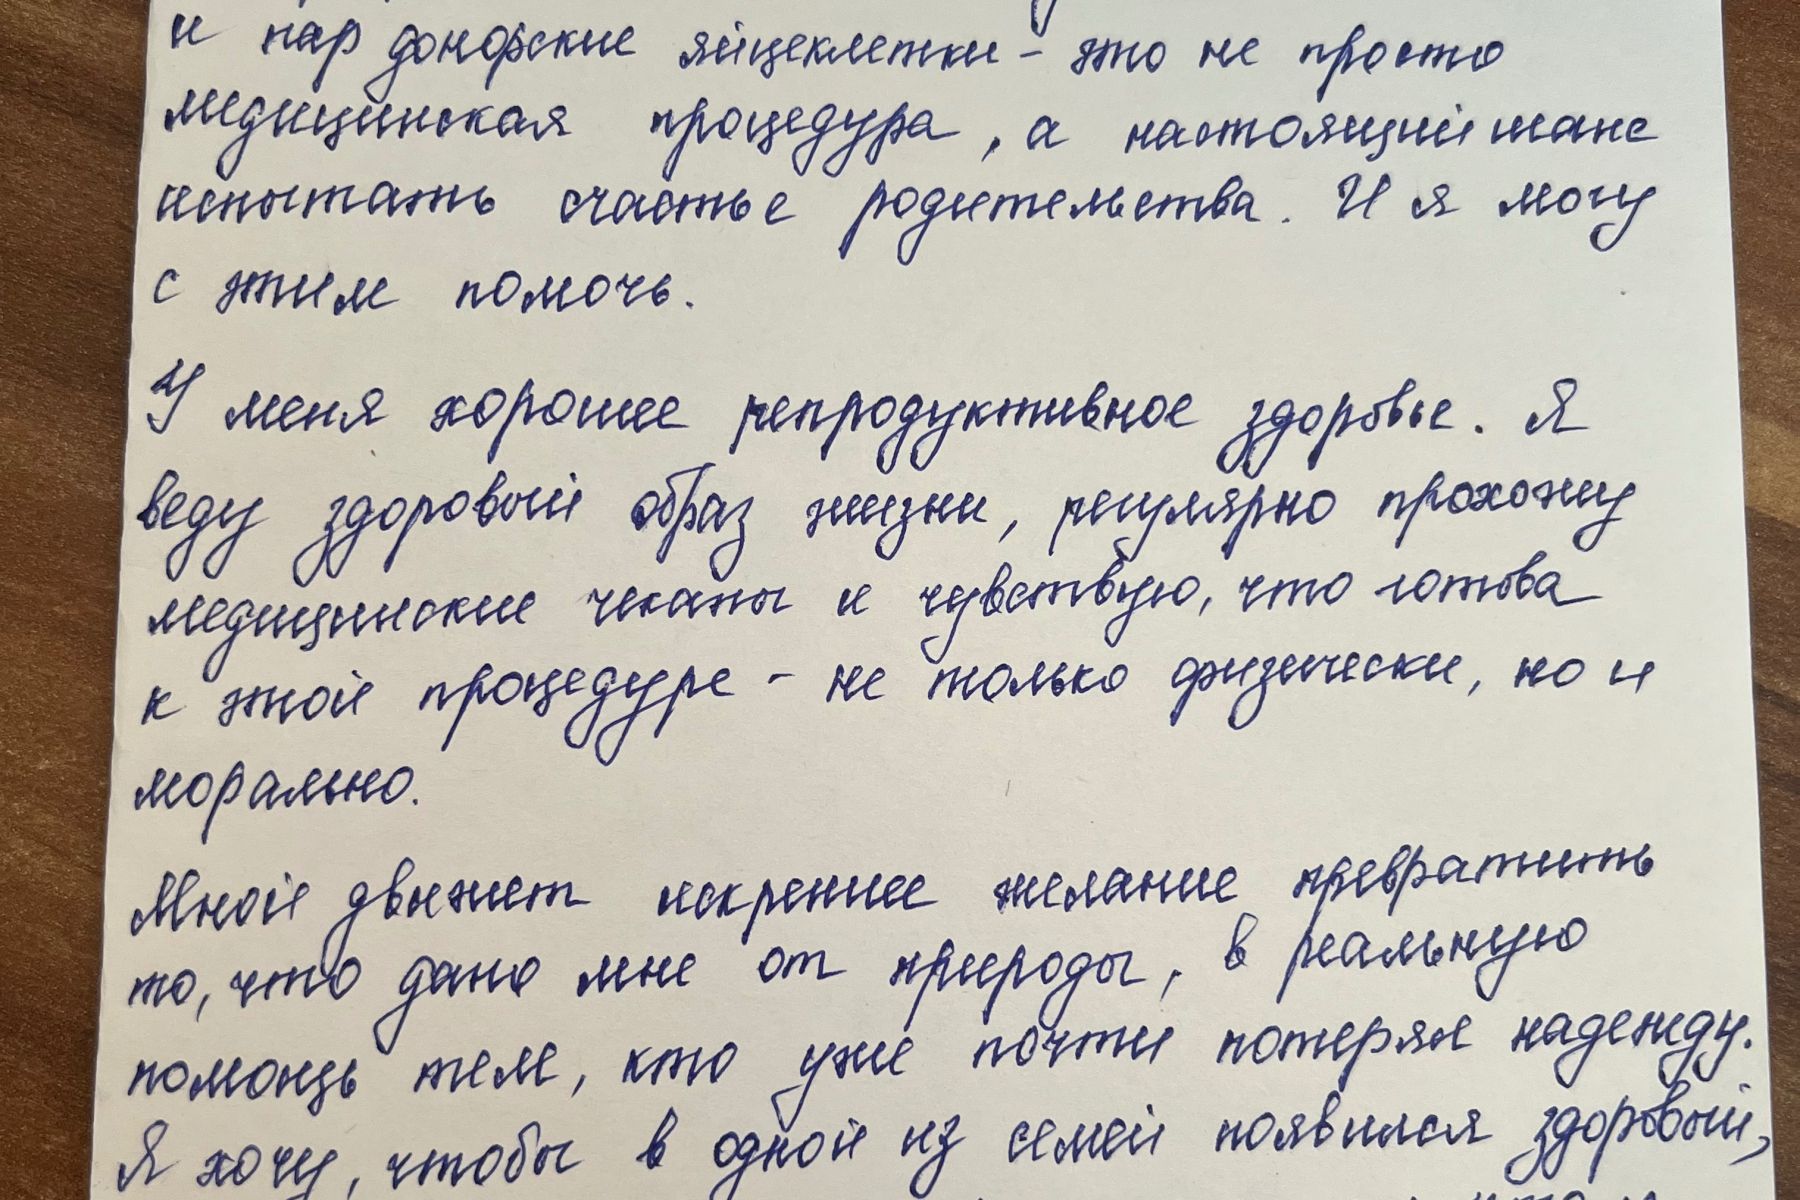 и пар донорские яйцеклетки – это не просто
медицинская процедура, а настоящий шанс
испытать счастье родительства. И я могу
с этим помочь.
У меня хорошее репродуктивное здоровье. Я
веду здоровый образ жизни, регулярно прохожу
медицинские чекапы и чувствую, что готова
к этой процедуре – не только физически, но и
морально.
Мной движет искреннее желание превратить
то, что дано мне от природы, в реальную
помощь тем, кто уже почти потерял надежду.
Я хочу, чтобы в одной из семей появился здоровый,